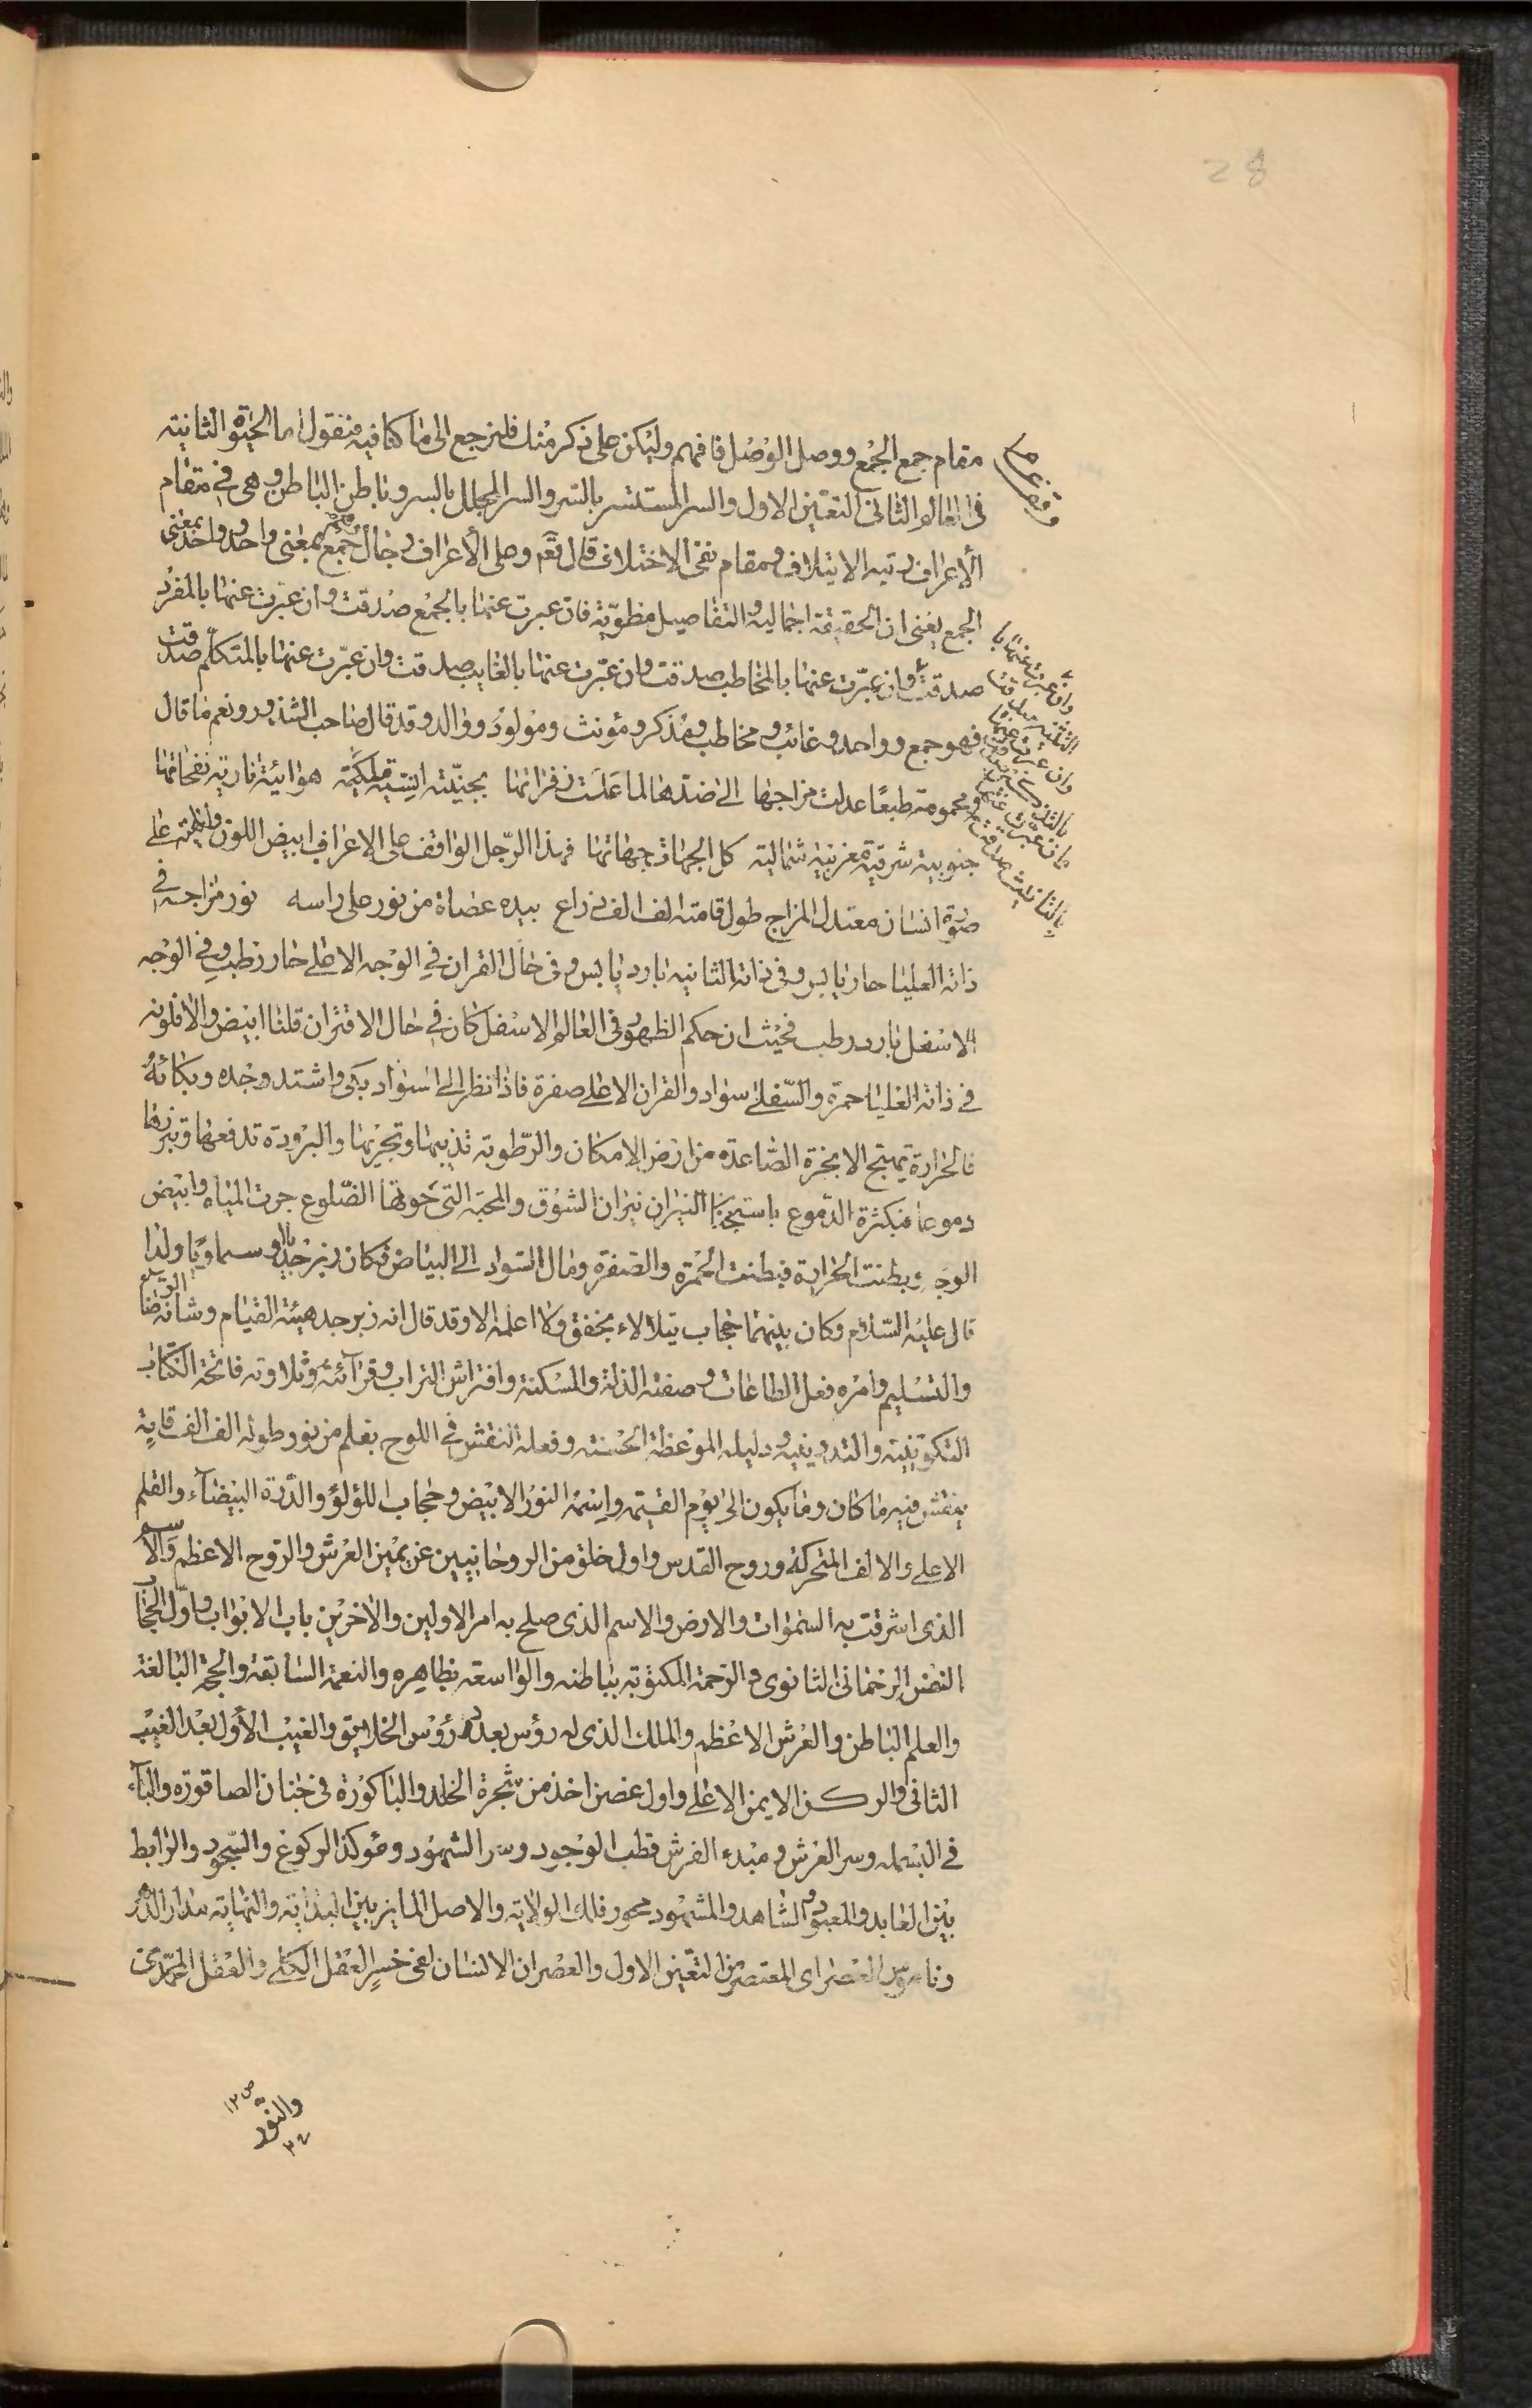 28
مقام جمع الجمع ووصل الوصل فافهم وليكن على ذكر منك فلنرجع الى ما كنا فيه فنقول اما الحيوة الثانية
فى العالم الثانى التعين الاول والسر المستسر بالسر والسر المجلل بالسر وباطن الباطن وهى فى مقام
الأعراف رتبة الايتلاف ومقام نفى الاختلاف قال تعم وعلى الأعراف رجال جمع بمعنى واحد وواحد بمعنى
الجمع يعنى ان الحقيقة اجمالية والتفاصيل مطوية فان عبرت عنها بالجمع صدقت وان عبرت عنها بالمفرد
صدقت وان عبرت عنها بالمخاطب صدقت وان عبرت عنها بالغايب صدقت وان عبرت عنها بالمتكلم صدقت
فهو جمع وواحد وغائب ومخاطب ومذكر ومؤنث ومولود ووالد وقد قال صاحب الشذور ونعم ما قال
ومحمومة طبعًا عدلت مزاجها الى ضدها لما علت زفراتها بجنية انسية ملكية هوائية نارية نفحاتها
جنوبية شرقية مغربية شمالية كل الجهات جهاتها فهذا الرجل الواقف على الاعراف ابيض اللون على
صورة انسان معتدل المزاج طول قامته الف الف ذراع بيده عصاة من نور على راسه نور مزاجه فى
ذاته العليا حار يابس وفى ذاته الثانية بارد يابس وفى حال القران فى الوجه الاعلى حار رطب وفى الوجه
الاسفل بارد رطب فحيث ان حكم الظهور فى العالم الاسفل كان فى حال الاقتران قلنا ابيض والا فلونه
فى ذاته العليا حمرة والسفلى سواد والقران الاعلى صفرة فاذا نظر الى اسواد بكى واشتد وجده وبكائه
فالحرارة تهيج الابخرة الصاعدة من ارض الامكان والرطوبة تذيبها وتجريها والبرودة تدفعها وتبرزها
دموعا فبكثرة الدموع باستجنان النيران نيران الشوق والمحبة التى حوتها الضلوع جرت المياه وابيض
الوجه وبطنت الحرارة فبطنت الحمرة والصفرة ومال السواد الى البياض فكان زبرجديا وسماويا ولذا
قال عليه السلام وكان بينهما حجاب يتلالاء بخفق ولا اعلمه الا وقد قال انه زبرجد هيئته القيام وشانه الرضا
والتسليم وامره فعل الطاعات وصفته الذلة والمسكنة وافتراش التراب وقرآئته وتلاوته فاتحة الكتاب
التكوينية والتدوينية ودليله الموعظة الحسنة وفعله النقش فى اللوح بقلم من نور طوله الف الف قامة
ينقش فيه ما كان وما يكون الى يوم القيمة واسمه النور الابيض وحجاب اللؤلؤ والدرة البيضاء والقلم
الاعلى والالف المتحركة وروح القدس واول خلق من الروحانيين عن يمين العرش والروح الاعظم والاسم
الذى اشرقت به السموات والارض والاسم الذى صلح به امر الاولين والاخرين باب الابواب واول الحجاب
النفس الرحمانى الثانوى والرحمة المكتوبة بباطنه والواسعة بظاهره والنعمة السابقة والحجة البالغة
والعلم الباطن والعرش الاعظم والملك الذى له رؤس بعدد رؤس الخلايق والغيب الأول بعد الغيب
الثانى والركن الايمن الاعلى واول غصن اخذ من شجرة الخلد والباكورة فى جنان الصاقورة والبآء
فى البسملة وسر العرش ومبدء الفرش قطب الوجود وسر الشهود ومؤكد الركوع والسجود والرابط
بين العابد والمعبود والشاهد والمشهود محور فلك الولاية والاصل المايز بين البداية والنهاية مدار الدهر
وناموس العصر اى المعتصر من التعين الاول والعصر ان الانسان لفى خسر العقل الكلى والعقل المحمدى
وان عبرت عنها با
وان عبرت عنها
بالتانيث صدقت
والنور